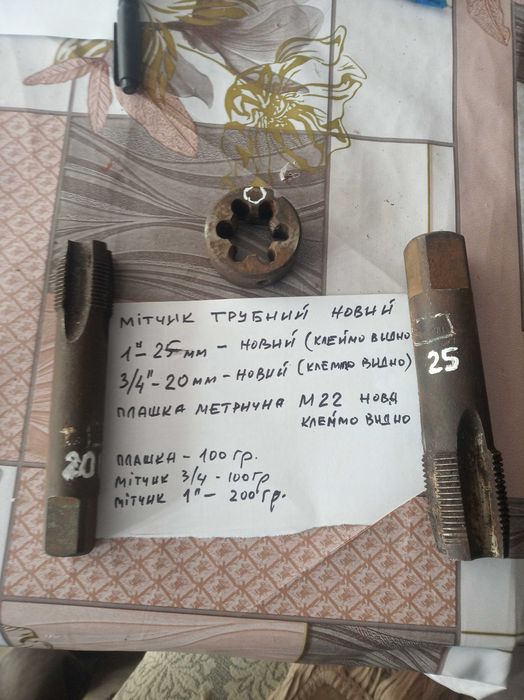 МІТЧИК ТРУБНИЙ НОВИЙ
1" - 25 мм - НОВИЙ (КЛЕЙМО ВИДНО)
3/4" - 20 мм - НОВИЙ (КЛЕЙМО ВИДНО)
ПЛАШКА МЕТРИЧНА М22 НОВА
КЛЕЙМО ВИДНО
ПЛАШКА - 100 гр.
МІТЧИК 3/4 - 100 гр
МІТЧИК 1" - 200 гр.
20
25